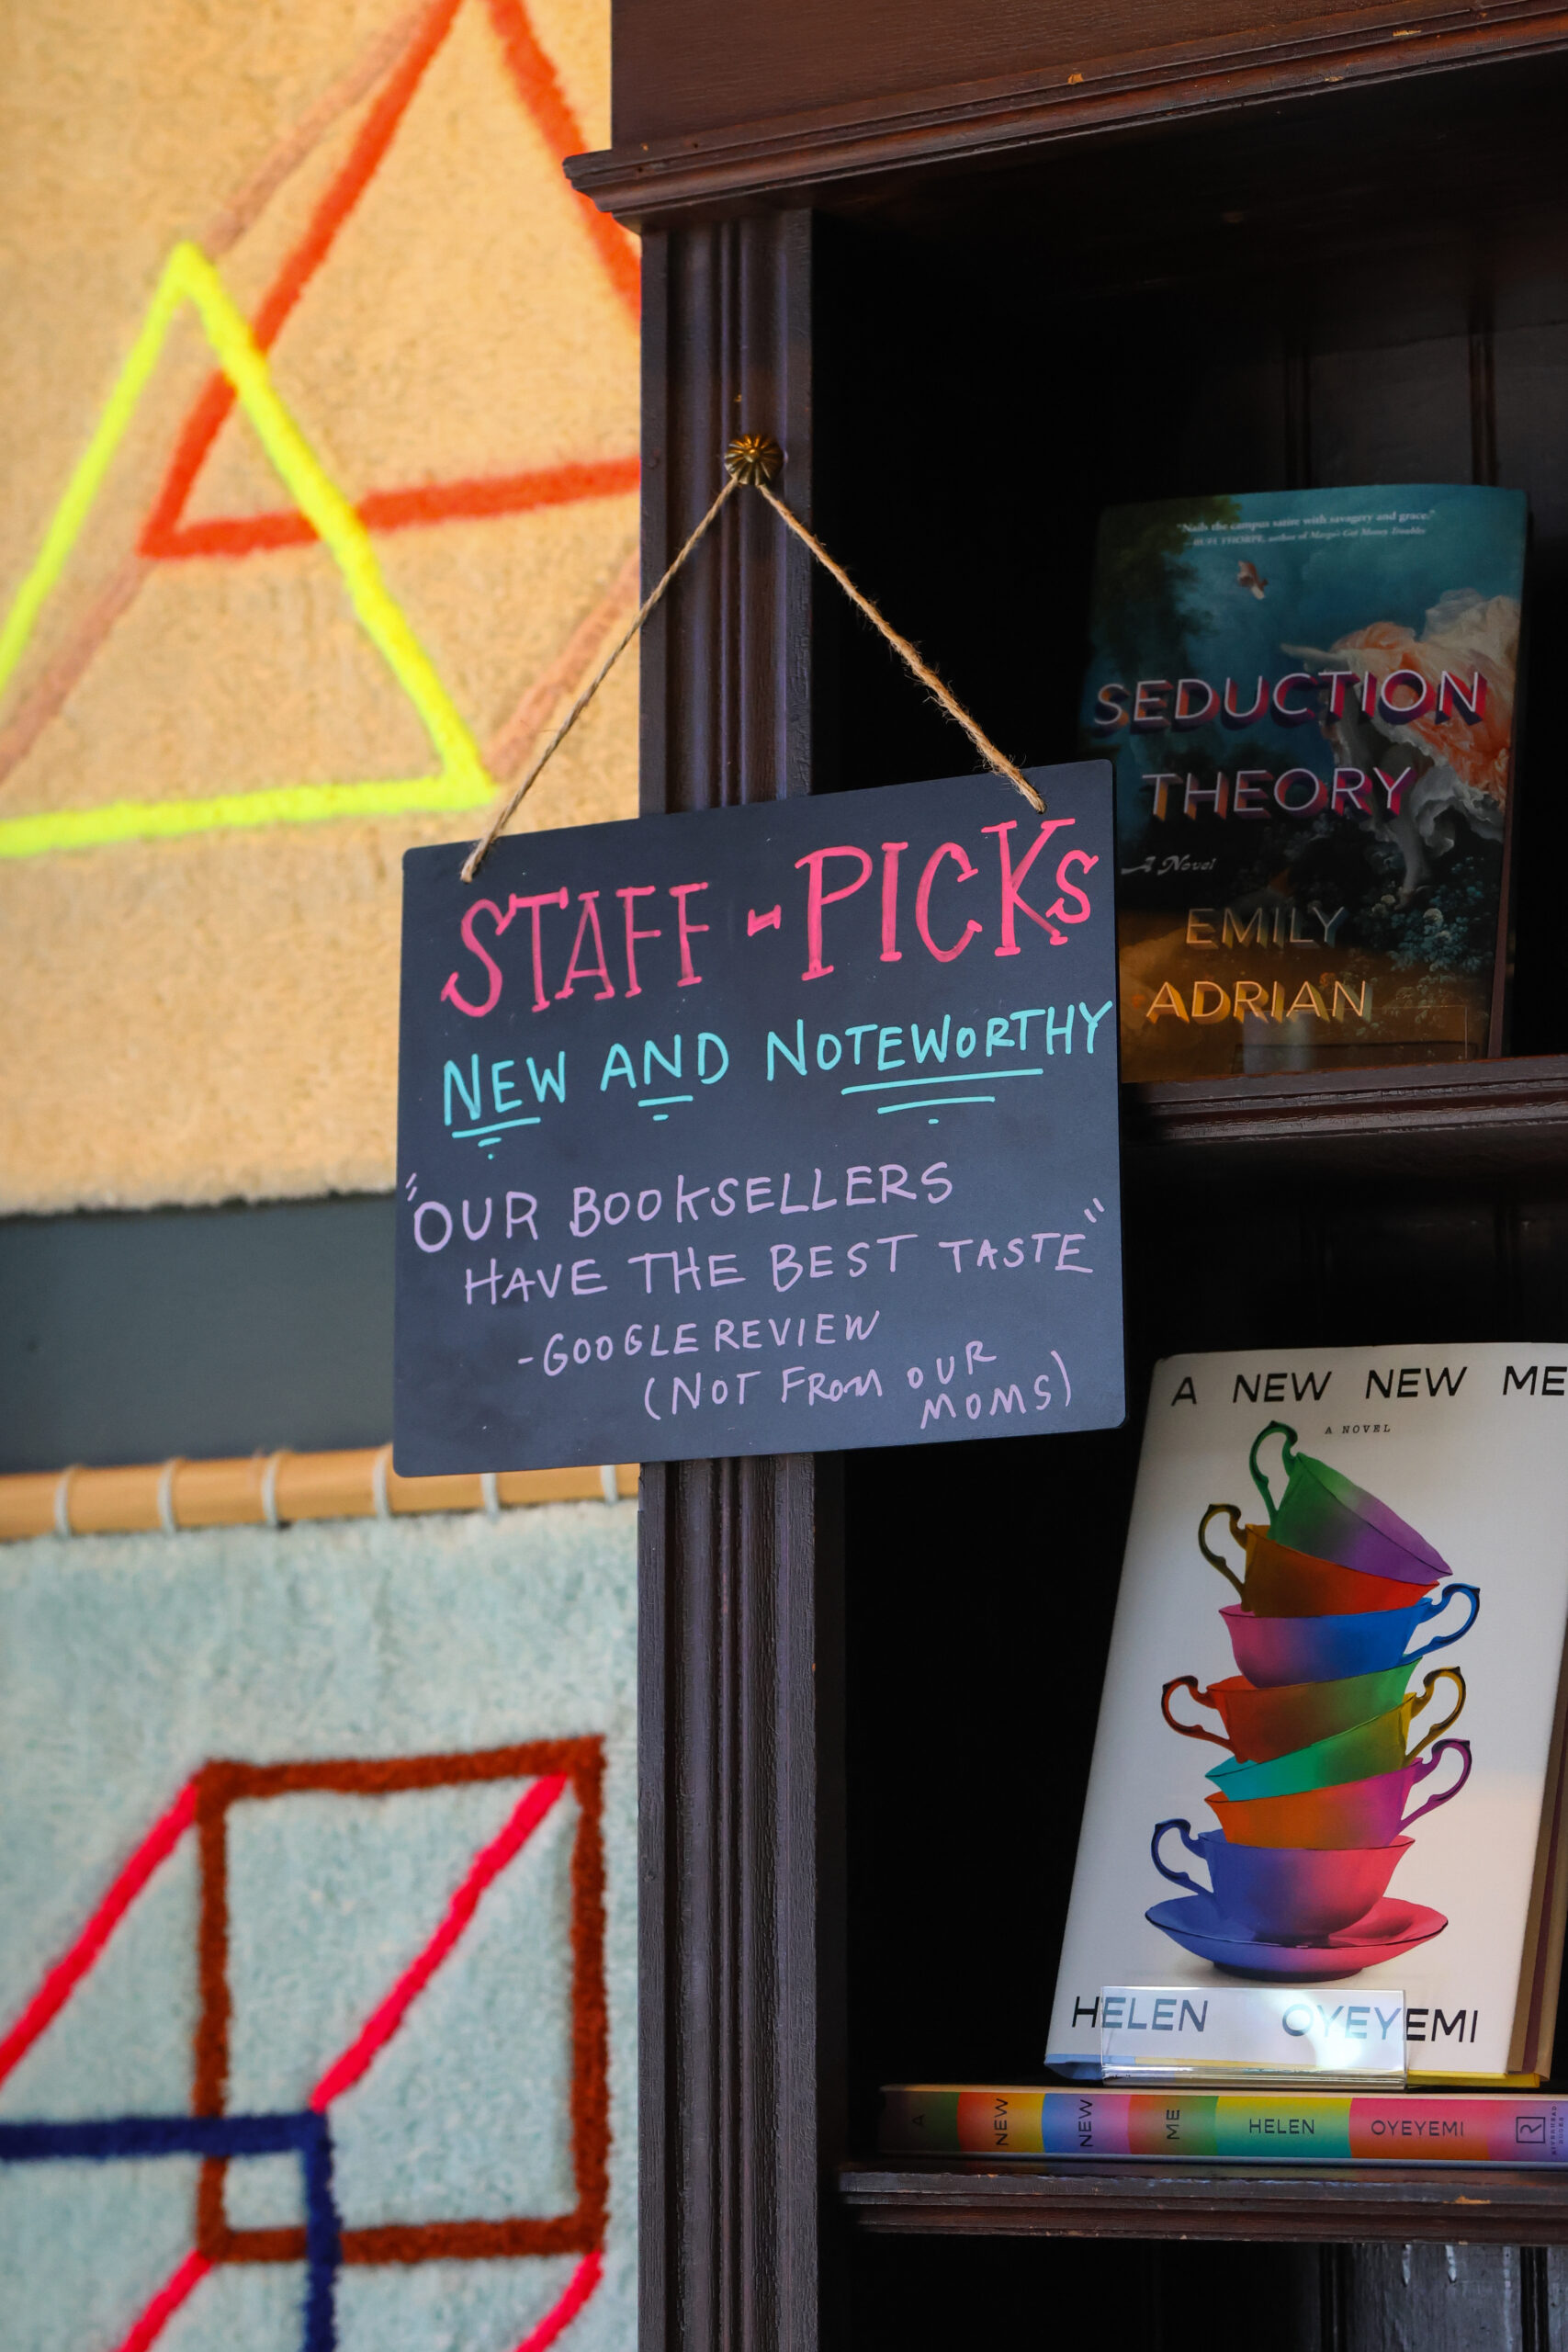 STAFF-PICKS
NEW AND NOTEWORTHY
"OUR BOOKSELLERS
HAVE THE BEST TASTE"
-GOOGLE REVIEW
(NOT FROM OUR
MOMS)
"Nails the campus satire with savagery and grace."
—RUFI THORPE, author of Margo's Got Money Troubles
SEDUCTION
THEORY
A Novel
EMILY
ADRIAN
A NEW NEW ME
A NOVEL
HELEN OYEYEMI
A NEW NEW ME HELEN OYEYEMI